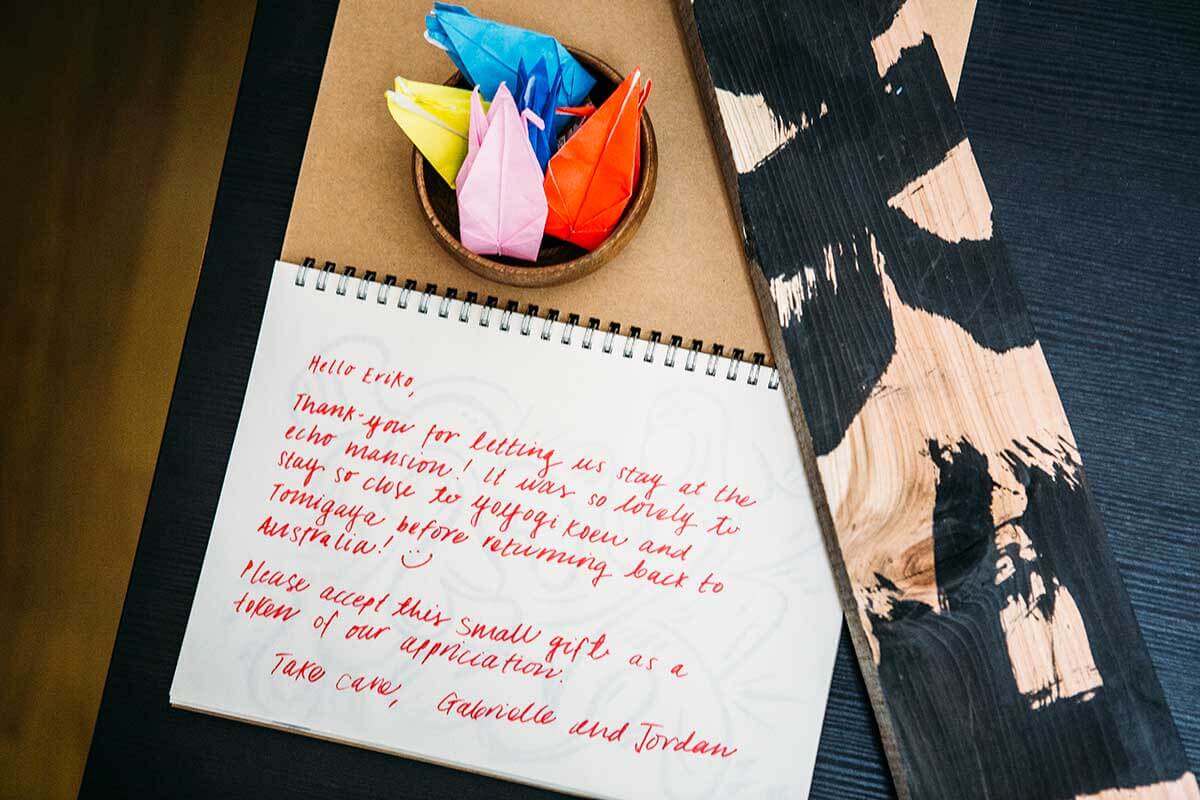 Hello Eriko,
Thank-you for letting us stay at the
echo mansion! It was so lovely to
stay so close to yoyogi koen and
Tomigaya before returning back to
Australia!
Please accept this small gift as a
token of our appriciation.
Take care, Gabrielle and Jordan